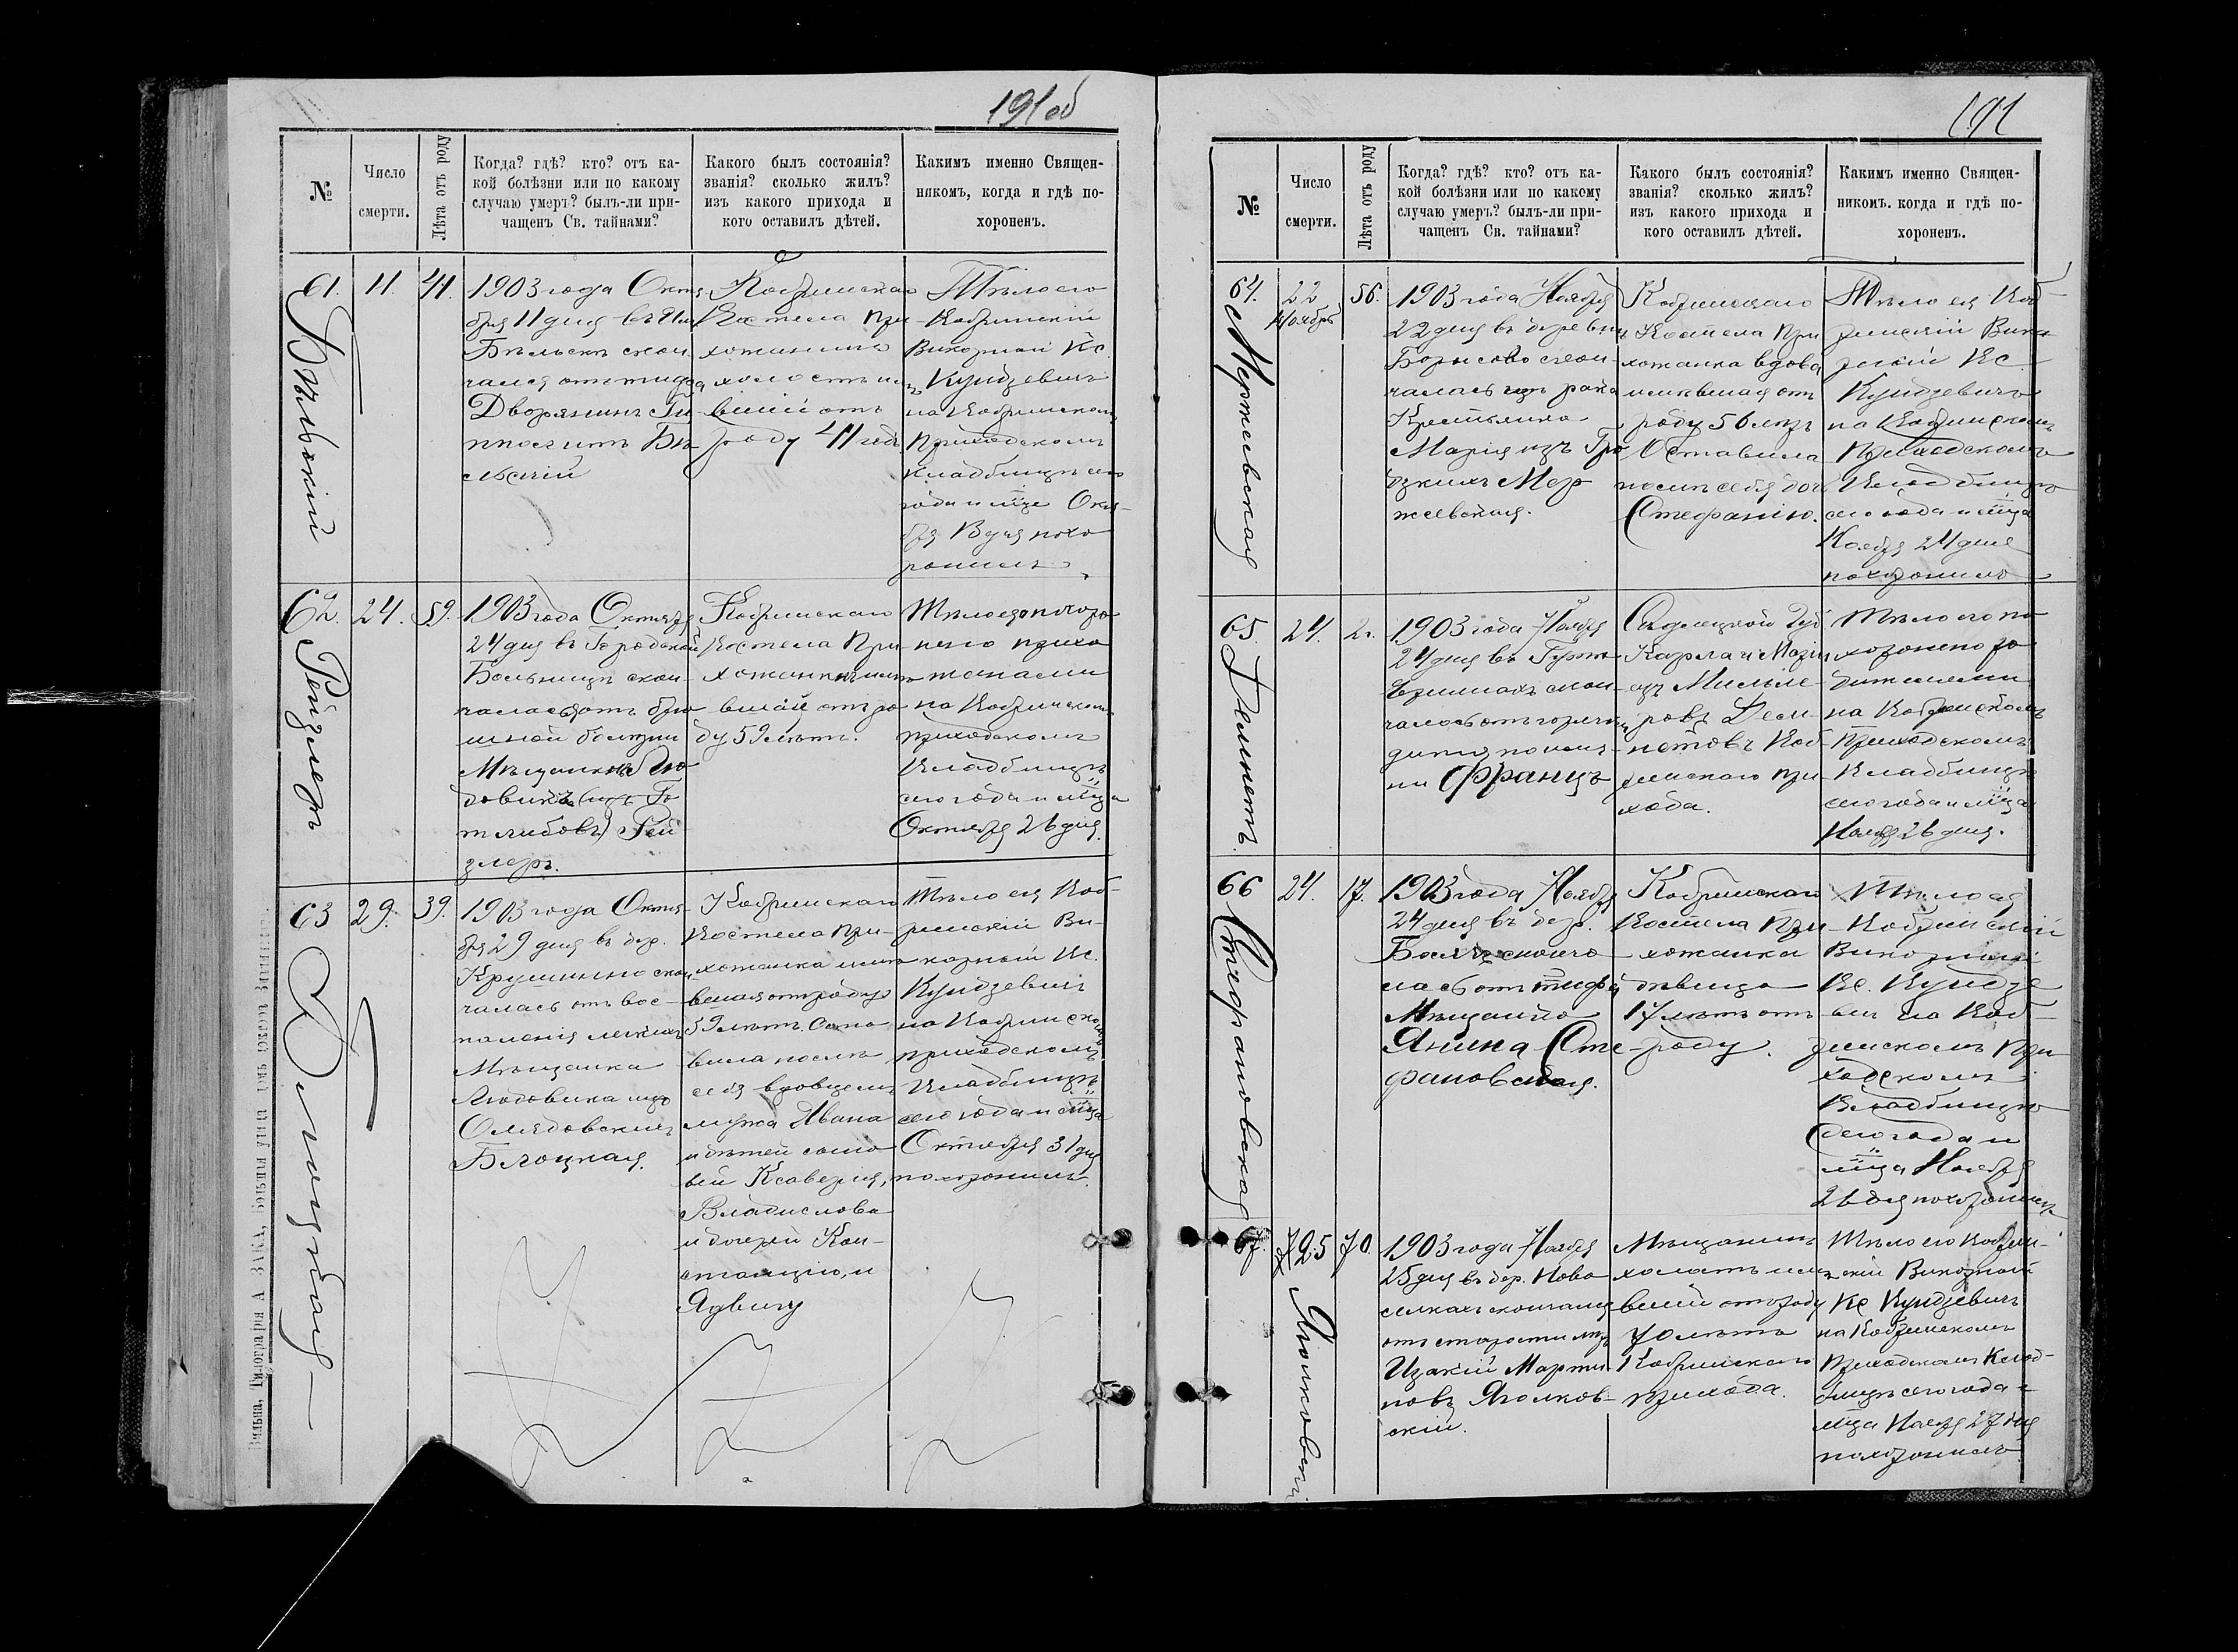 191об
№
Число
смерти.
Лѣта отъ роду
Когда? гдѣ? кто? отъ ка-
кой болѣзни или по какому
случаю умеръ? былъ-ли при-
чащенъ Св. тайнами?
Какого былъ состоянія?
званія? сколько жилъ?
изъ какого прихода и
кого оставилъ дѣтей.
Какимъ именно Священ-
никомъ, когда и гдѣ по-
хороненъ.
61.
Бѣльскій
11.
41.
1903 года Октя-
бря 11 дня
Бѣльскъ скон-
чался отъ тифа
Дворянинъ
Бѣ-
льскій
Кобринскаго
Костела При-
хожанинъ
холостъ
вшій отъ
роду 41 годъ
Тѣло его
Кобринскій
Викарный Кс.
Кундзевичъ
на Кобринскомъ
Приходскомъ
кладбищѣ сего
года и мца Октя-
бря 13 дня похо
ронилъ
62.
Рейзлеръ
24.
59.
1903 года Октября
24 дня въ Городской
Больницѣ скон-
чалась отъ брю
шной болѣзни
Мѣщанка Лю
довика (изъ Го
тлибовъ) Рей
злеръ.
Кобринскаго
Костела При
хожанка
вшая отъ ро
ду 59 лѣтъ.
Тѣло ея похоро
нено прихо
жанами
на Кобринскомъ
приходскомъ
Кладбищѣ
сего года и мца
Октября 26 дня.
63
Блоцкая
29.
39.
1903 года Октя-
бря 29 дня въ дер.
Крушинно скон
чалась отъ вос-
паленія легкихъ
Мѣщанка
Людовика изъ
Олядовскихъ
Блоцкая.
Кобринскаго
Костела При-
хожанка имѣ
вшая отъ роду
39 лѣтъ. Оста
вила послѣ
себя вдовцемъ
мужа Ивана
и дѣтей сыно
вей Ксаверія,
Владислава
и дочерей Кон-
станцію, и
Ядвигу
Тѣло ея Коб-
ринскій Ви-
карный Кс.
Кундзевичъ
на Кобринскомъ
приходскомъ
Кладбищѣ
сего года и мца
Октября 31 дня
похоронилъ.
Вильна, Типографія А
191
№
Число
смерти.
Лѣта отъ роду
Когда? гдѣ? кто? отъ ка-
кой болѣзни или по какому
случаю умеръ? былъ-ли при-
чащенъ Св. тайнами?
Какого былъ состоянія?
званія? сколько жилъ?
изъ какого прихода и
кого оставилъ дѣтей.
Какимъ именно Священ-
никомъ. когда и гдѣ по-
хороненъ.
64.
Мержеевская
22
Ноября
56.
1903 года Ноября
22 дня въ деревни
Борисово скон-
чалась отъ рака
Крестьянка
Марія изъ Гро
дзкихъ Мер
жеевская.
Кобринскаго
Костела При
хожанка вдова
имѣвшая отъ
роду 56 лѣтъ
Оставила
послѣ себя дочь
Стефанію.
Тѣло ея Коб-
ринскій Вика
рный Кс.
Кундзевичъ
на Кобринскомъ
Приходскомъ
Кладбищѣ
сего года и мца
Ноября 24 дня
похоронилъ
65.
Демкетъ.
24.
2.
1903 года Ноября
24 дня въ
скон-
чалось отъ горячки
дитя по име-
ни Францъ
Сѣдлецкой Губ
Карла и Маріи
изъ
Коб-
ринскаго при
хода.
Тѣло его по
хоронено ро
дителями
на Кобринскомъ
Приходскомъ
Кладбищѣ
сего года и мца
Ноября 26 дня.
66
Стефановская
24.
17.
1903 года Ноября
24 дня въ дер.
сконча
лась отъ тифа
Мѣщанка
Янина Сте
фановская.
Кобринскаго
Костела При
хожанка
дѣвица
17 лѣтъ отъ
роду.
Тѣло ея
Кобринскій
Викарный
Кс. Кундзе
вичъ на Коб-
ринскомъ При
ходскомъ
Кладбищѣ
сего года и
мца Ноября
26 дня похоронилъ
67.
Яголковскій
25
70.
1903 года Ноября
25 дня въ дер. Ново
селкахъ скончался
отъ старости лѣтъ
Изакій Марти
новъ Яголков-
скій.
Мѣщанинъ
холостъ имѣ
вшій отъ роду
70 лѣтъ
Кобринскаго
прихода.
Тѣло его Кобрин-
скій Викарный
Кс Кундзевичъ
на Кобринскомъ
Приходскомъ Клад-
бищѣ сего года и
мца Ноября 27 дня
похоронилъ